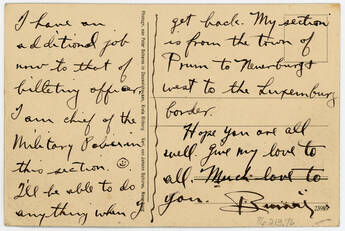 I have an
additional job
now to that of
billeting officer.
I am chief of the
Military Police in
this section.
I'll be able to do
anything when I
get back. My section
is from the town of
Prum to Neuerburg
west to the Luxemburg
border.
Hope you are all
well. Give my love to
all. Much love to
you.